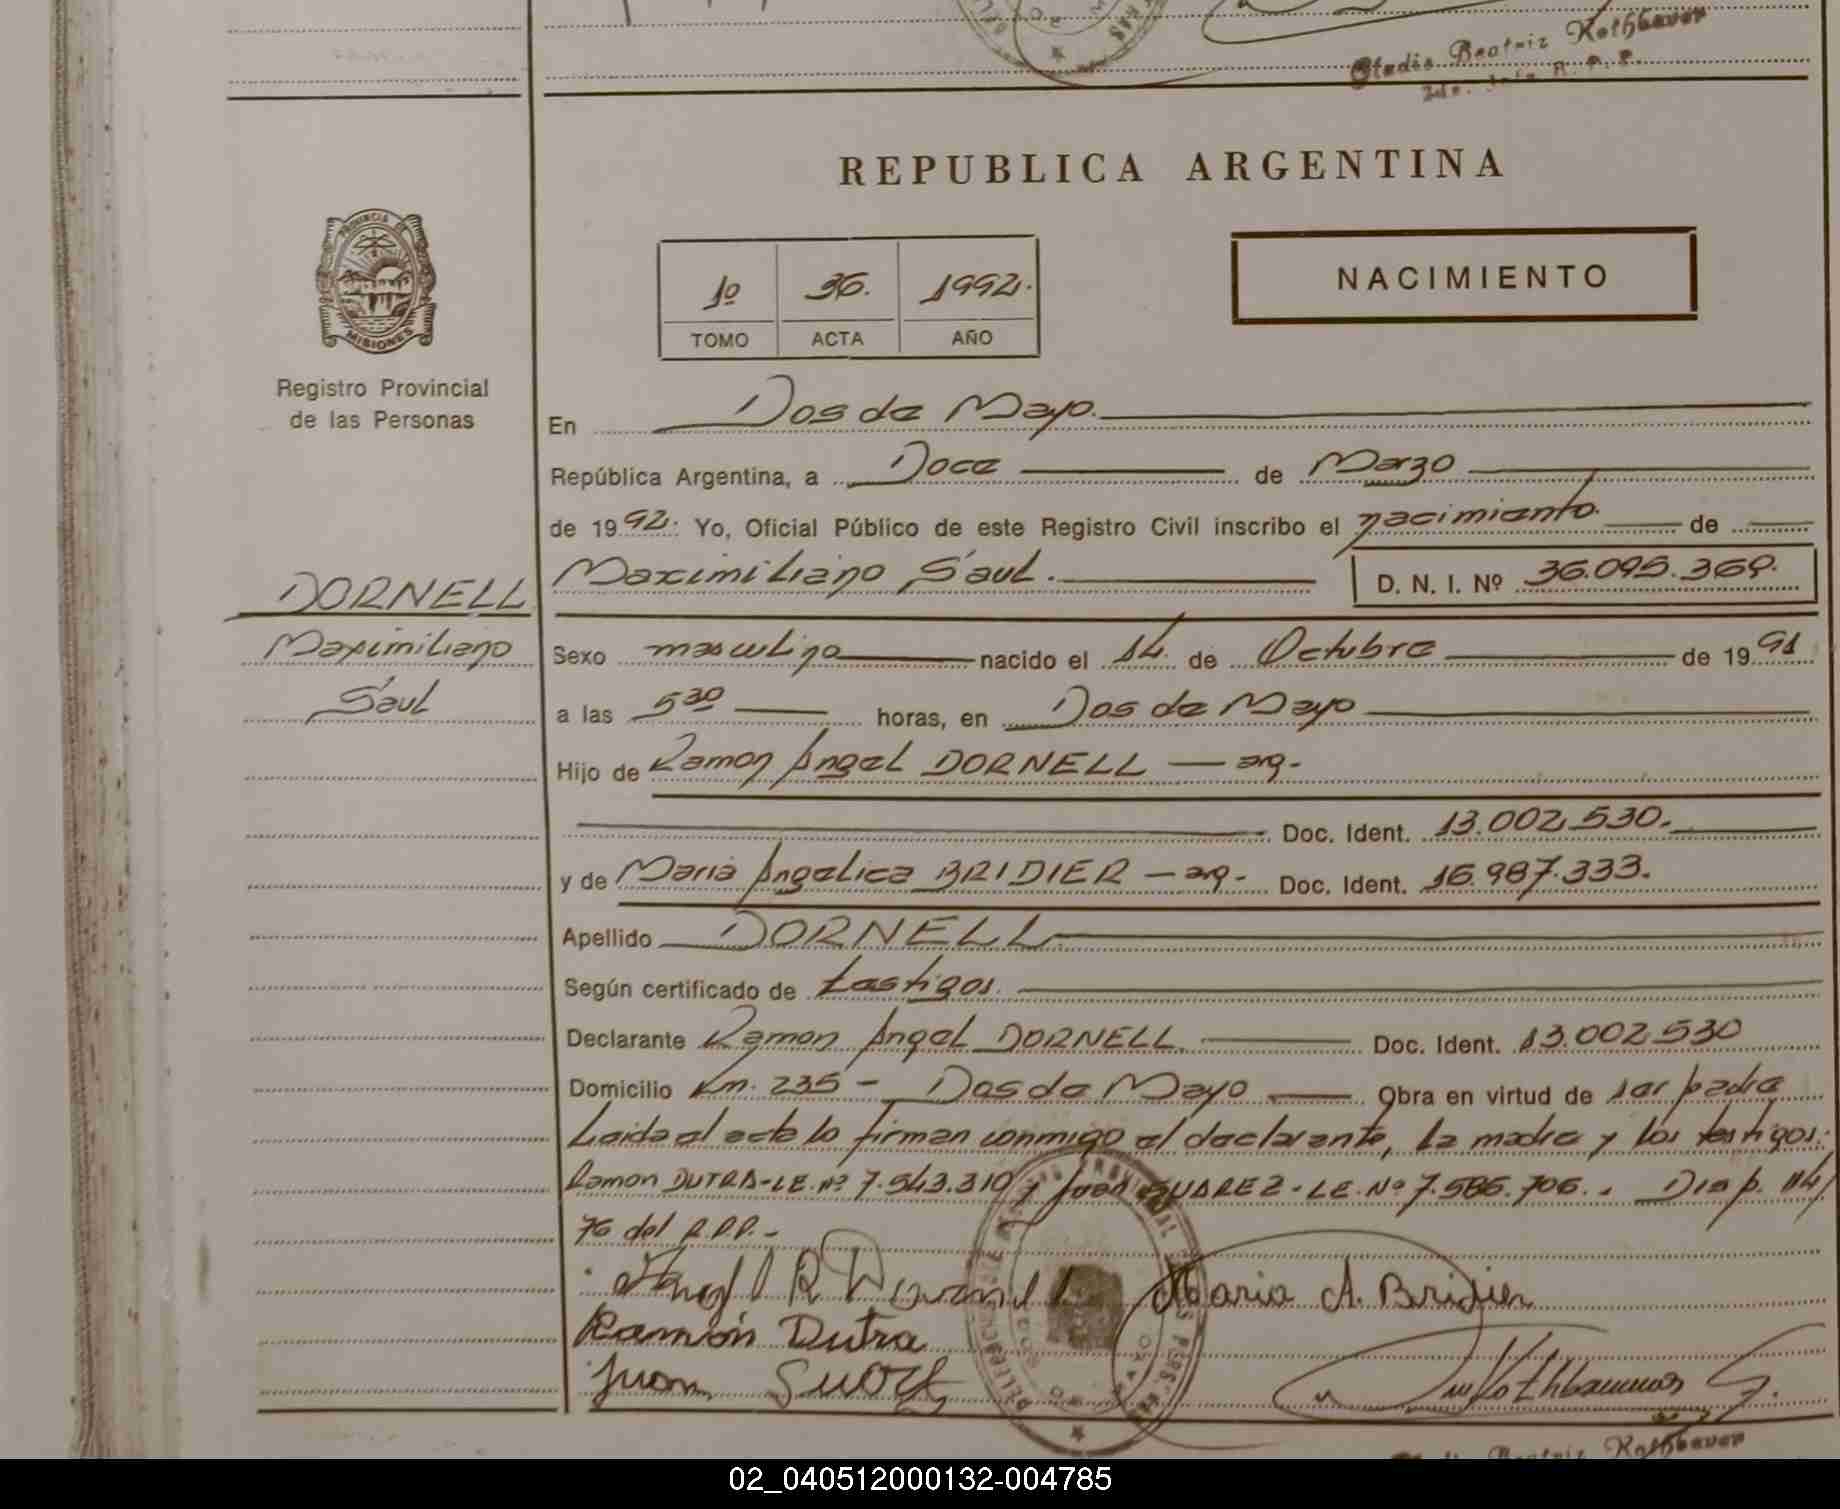 Stadie Beatriz Rothbauer
REPUBLICA ARGENTINA
PROVINCIA DE
MISIONES
Registro Provincial
de las Personas
1º 36. 1992.
TOMO ACTA AÑO
NACIMIENTO
En Dos de Mayo.
República Argentina, a Doce de Marzo
de 1992. Yo, Oficial Público de este Registro Civil inscribo el nacimiento de
DORNELL
Maximiliano
Saul
Maximiliano Saul. D. N. I. Nº 36.095.369.
Sexo masculino nacido el 14. de Octubre de 1991
a las 5 30 horas, en Dos de Mayo
Hijo de Ramon Angel DORNELL - arg.-
Doc. Ident. 13.002.530.
y de Maria Angelica BRIDIER - arg.- Doc. Ident. 16.987.333.
Apellido DORNELL
Según certificado de testigos.
Declarante Ramon Angel DORNELL. Doc. Ident. 13.002.530
Domicilio Km. 235 - Dos de Mayo Obra en virtud de ser padre
Leida el acta lo firman conmigo el declarante, la madre y los testigos:
Ramon DUTRA-LE.Nº 7.543.310 y Juan SUAREZ-LE.Nº 7.586.706.. Disp. 114/
76 del R.P.P.-
Angel R Dornell Maria A. Bridier
Ramón Dutra
Juan
Stadie Beatriz Rothbauer
02_040512000132-004785